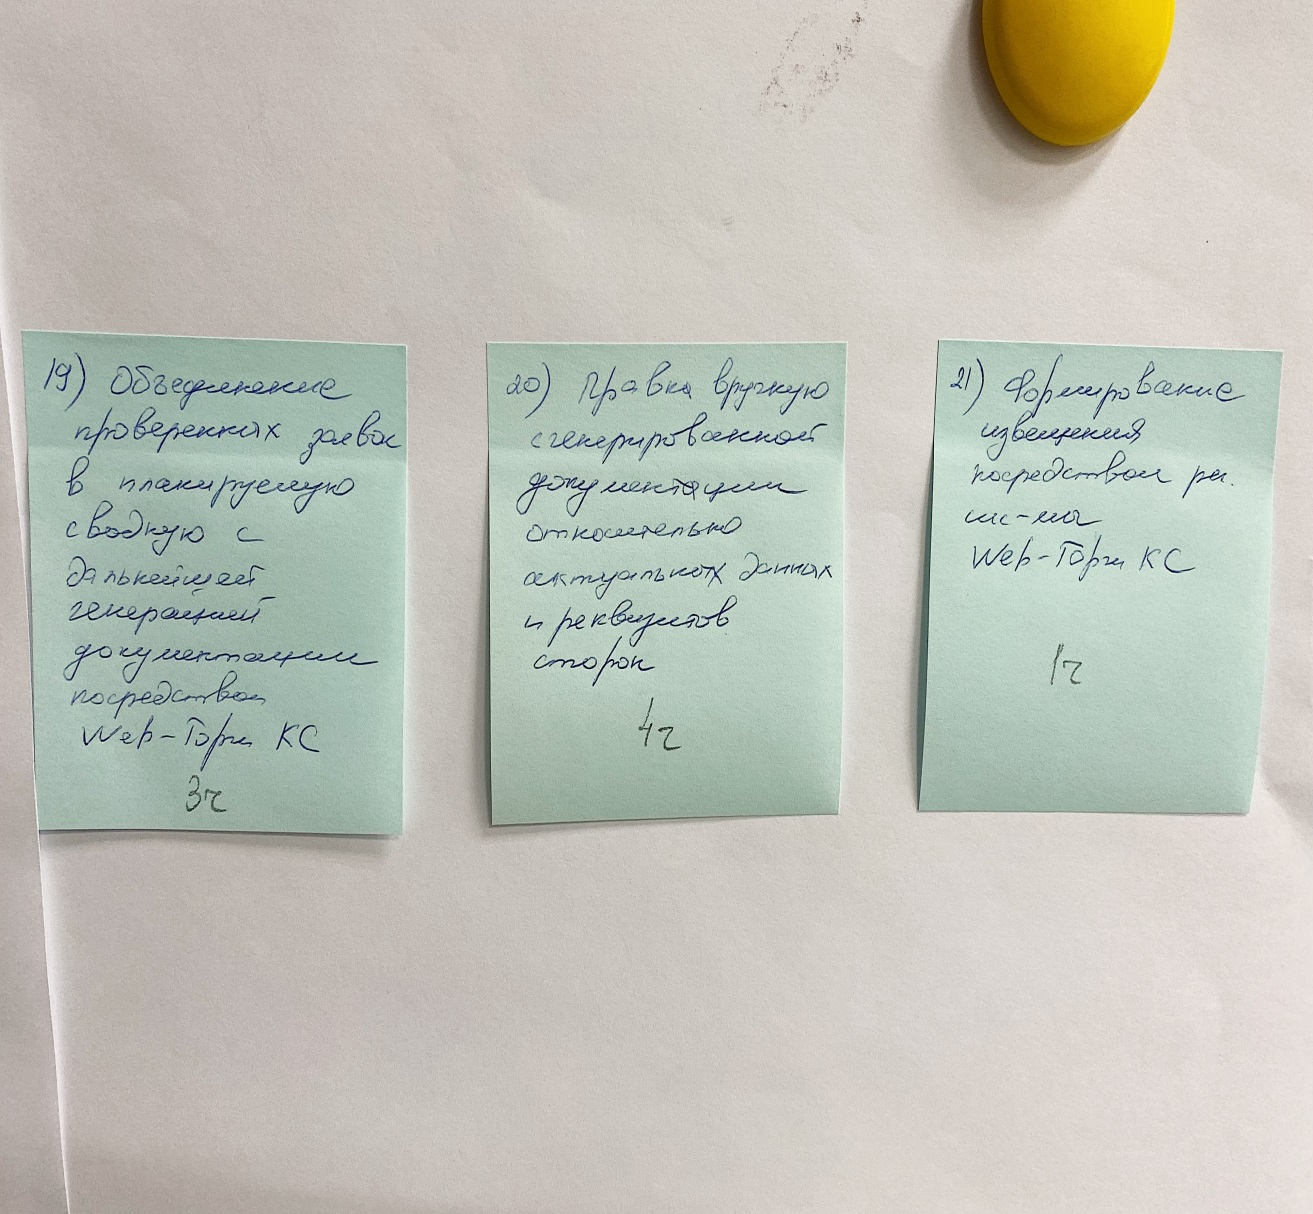 19) Объединение
проверенных заявок
в планируемую
сводную с
дальнейшей
генерацией
документации
посредством
Web-Торги КС
3ч
20) Правка вручную
сгенерированной
документации
относительно
актуальных данных
и реквизитов
сторон
4ч
21) Формирование
извещения
посредством
Web-Торги КС
1ч